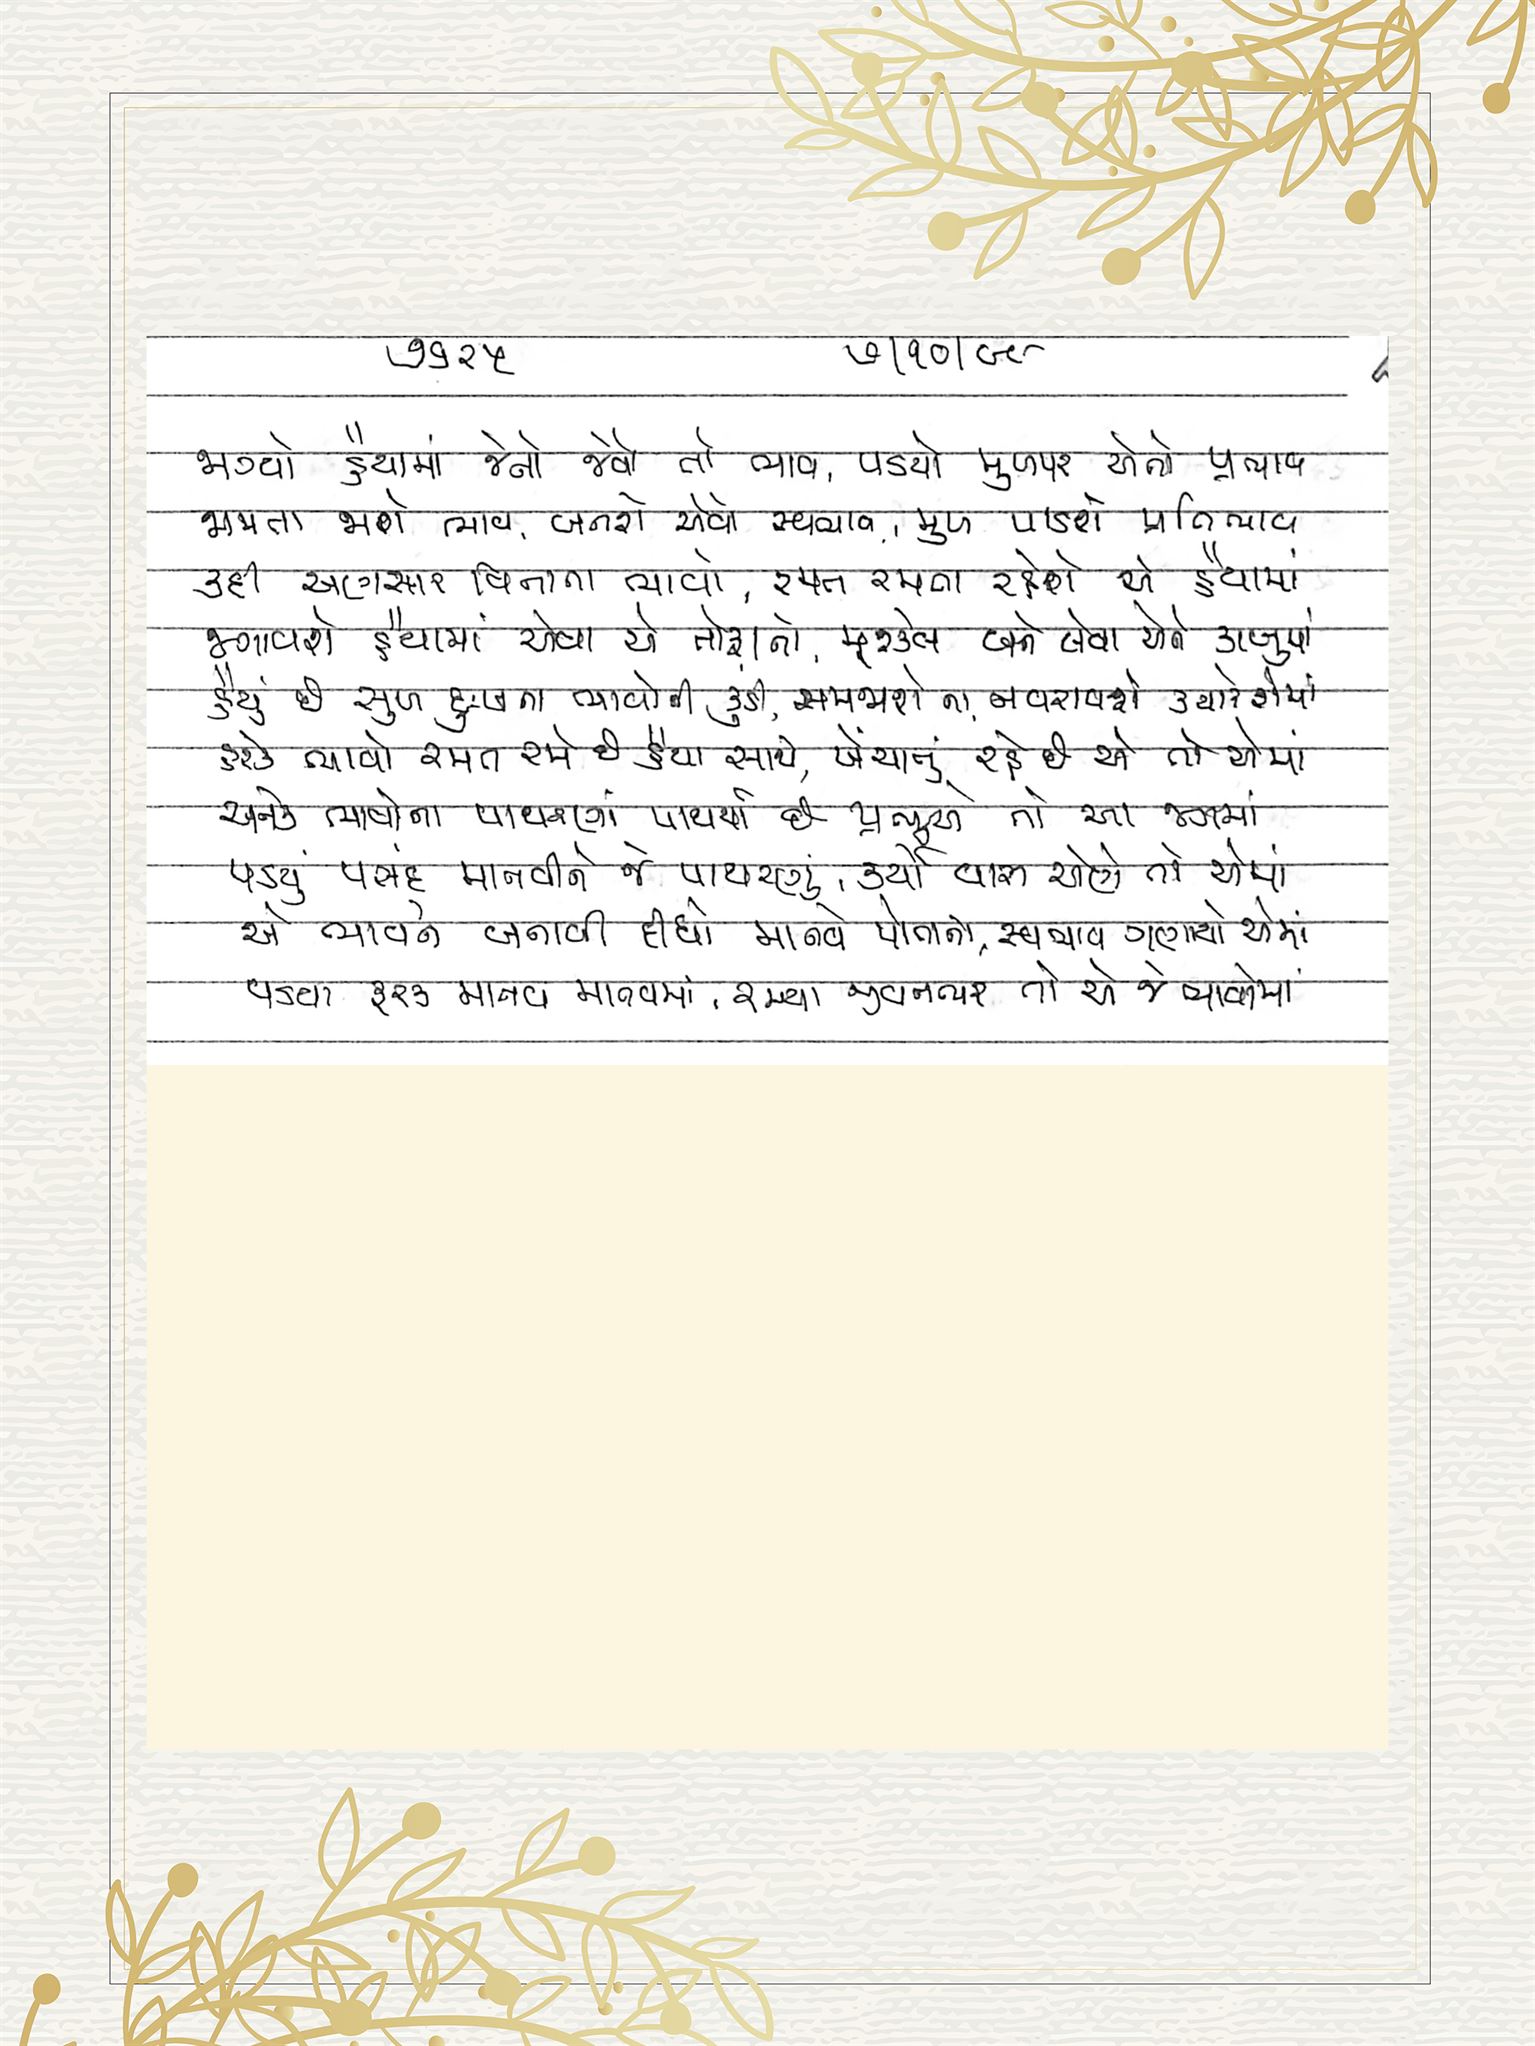 ૭૬૨૫ ૭/૧૦/૯૮
જાગ્યો હૈયામાં જેનો જેવો તો ભાવ, પડયો મુખપર એનો પ્રભાવ
જાગતા જાશે ભાવ, બનશે એવો સ્વભાવ, મુખ પાડશે પ્રતિભાવ
કહી અણસાર વિનાના ભાવો, રમત રમતા રહેશે એ હૈયામાં
જગાવશે હૈયામાં એવા એ તોફાનો, મુશ્કેલ બને લેવા એને કાબુમાં
હૈયું છે સુખ દુઃખના ભાવોની કુંડી, સમજાશે ના, નવરાવશે ક્યારે શેમાં
હરેક ભાવો રમત રમે છે હૈયા સાથે, ખેંચાતું રહે છે એ તો એમાં
અનેક ભાવોના પાથરણાં પાથર્યા છે પ્રભુએ તો આ જગમાં
પડયું પસંદ માનવીને જે પાથરણું, કર્યો વાસ એણે તો એમાં
એ ભાવને બનાવી દીધો માનવે પોતાનો, સ્વભાવ ગણાયો એમાં
પડયા ફરક માનવ માનવમાં, રમ્યા જીવનભર તો એ જે ભાવોમાં